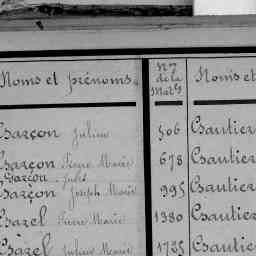 Noms et prénoms. Nos de la Matle Noms et
Garçon Julien 506 Gautier
Garçon Pierre Marie 678 Gautier
Garçon Jules
Garçon Joseph Marie 995 Gautier
Gazel Pierre Marie 1380 Gautier
Gazel Julien Marie 1725 Gautier